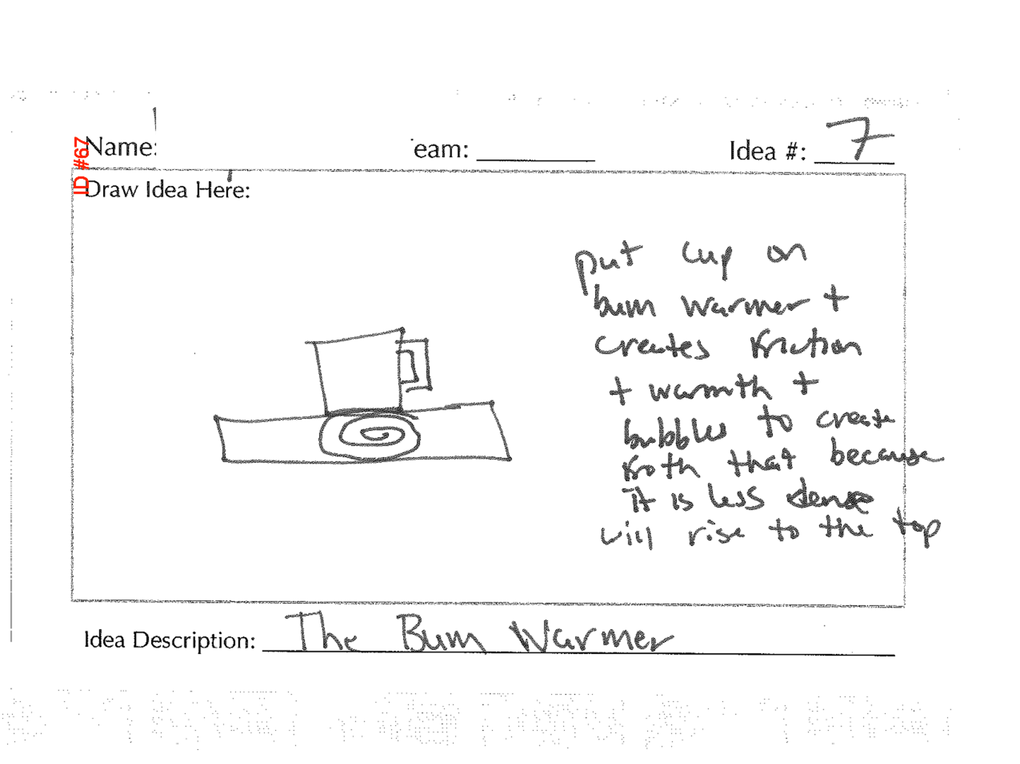 Name:
eam:
Idea #: 7
ID #67
Draw Idea Here:
put cup on
bum warmer +
creates friction
+ warmth +
bubbles to create
froth that because
it is less dense
will rise to the top
Idea Description: The Bum Warmer